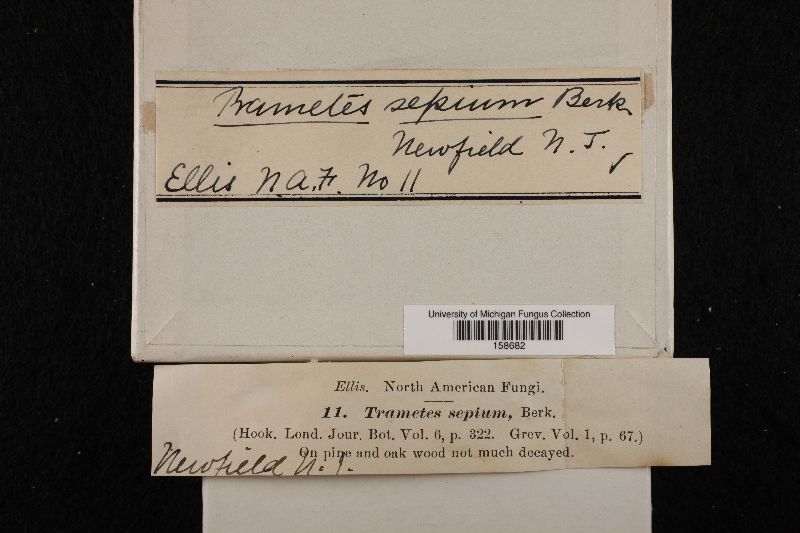 Trametes sepium Berk
Newfield N. J.
Ellis N. A. F. No 11
University of Michigan Fungus Collection
158682
Ellis. North American Fungi.
11. Trametes sepium, Berk.
(Hook. Lond. Jour. Bot. Vol. 6, p. 322. Grev. Vol. 1, p. 67.)
On pine and oak wood not much decayed.
Newfield N. J.